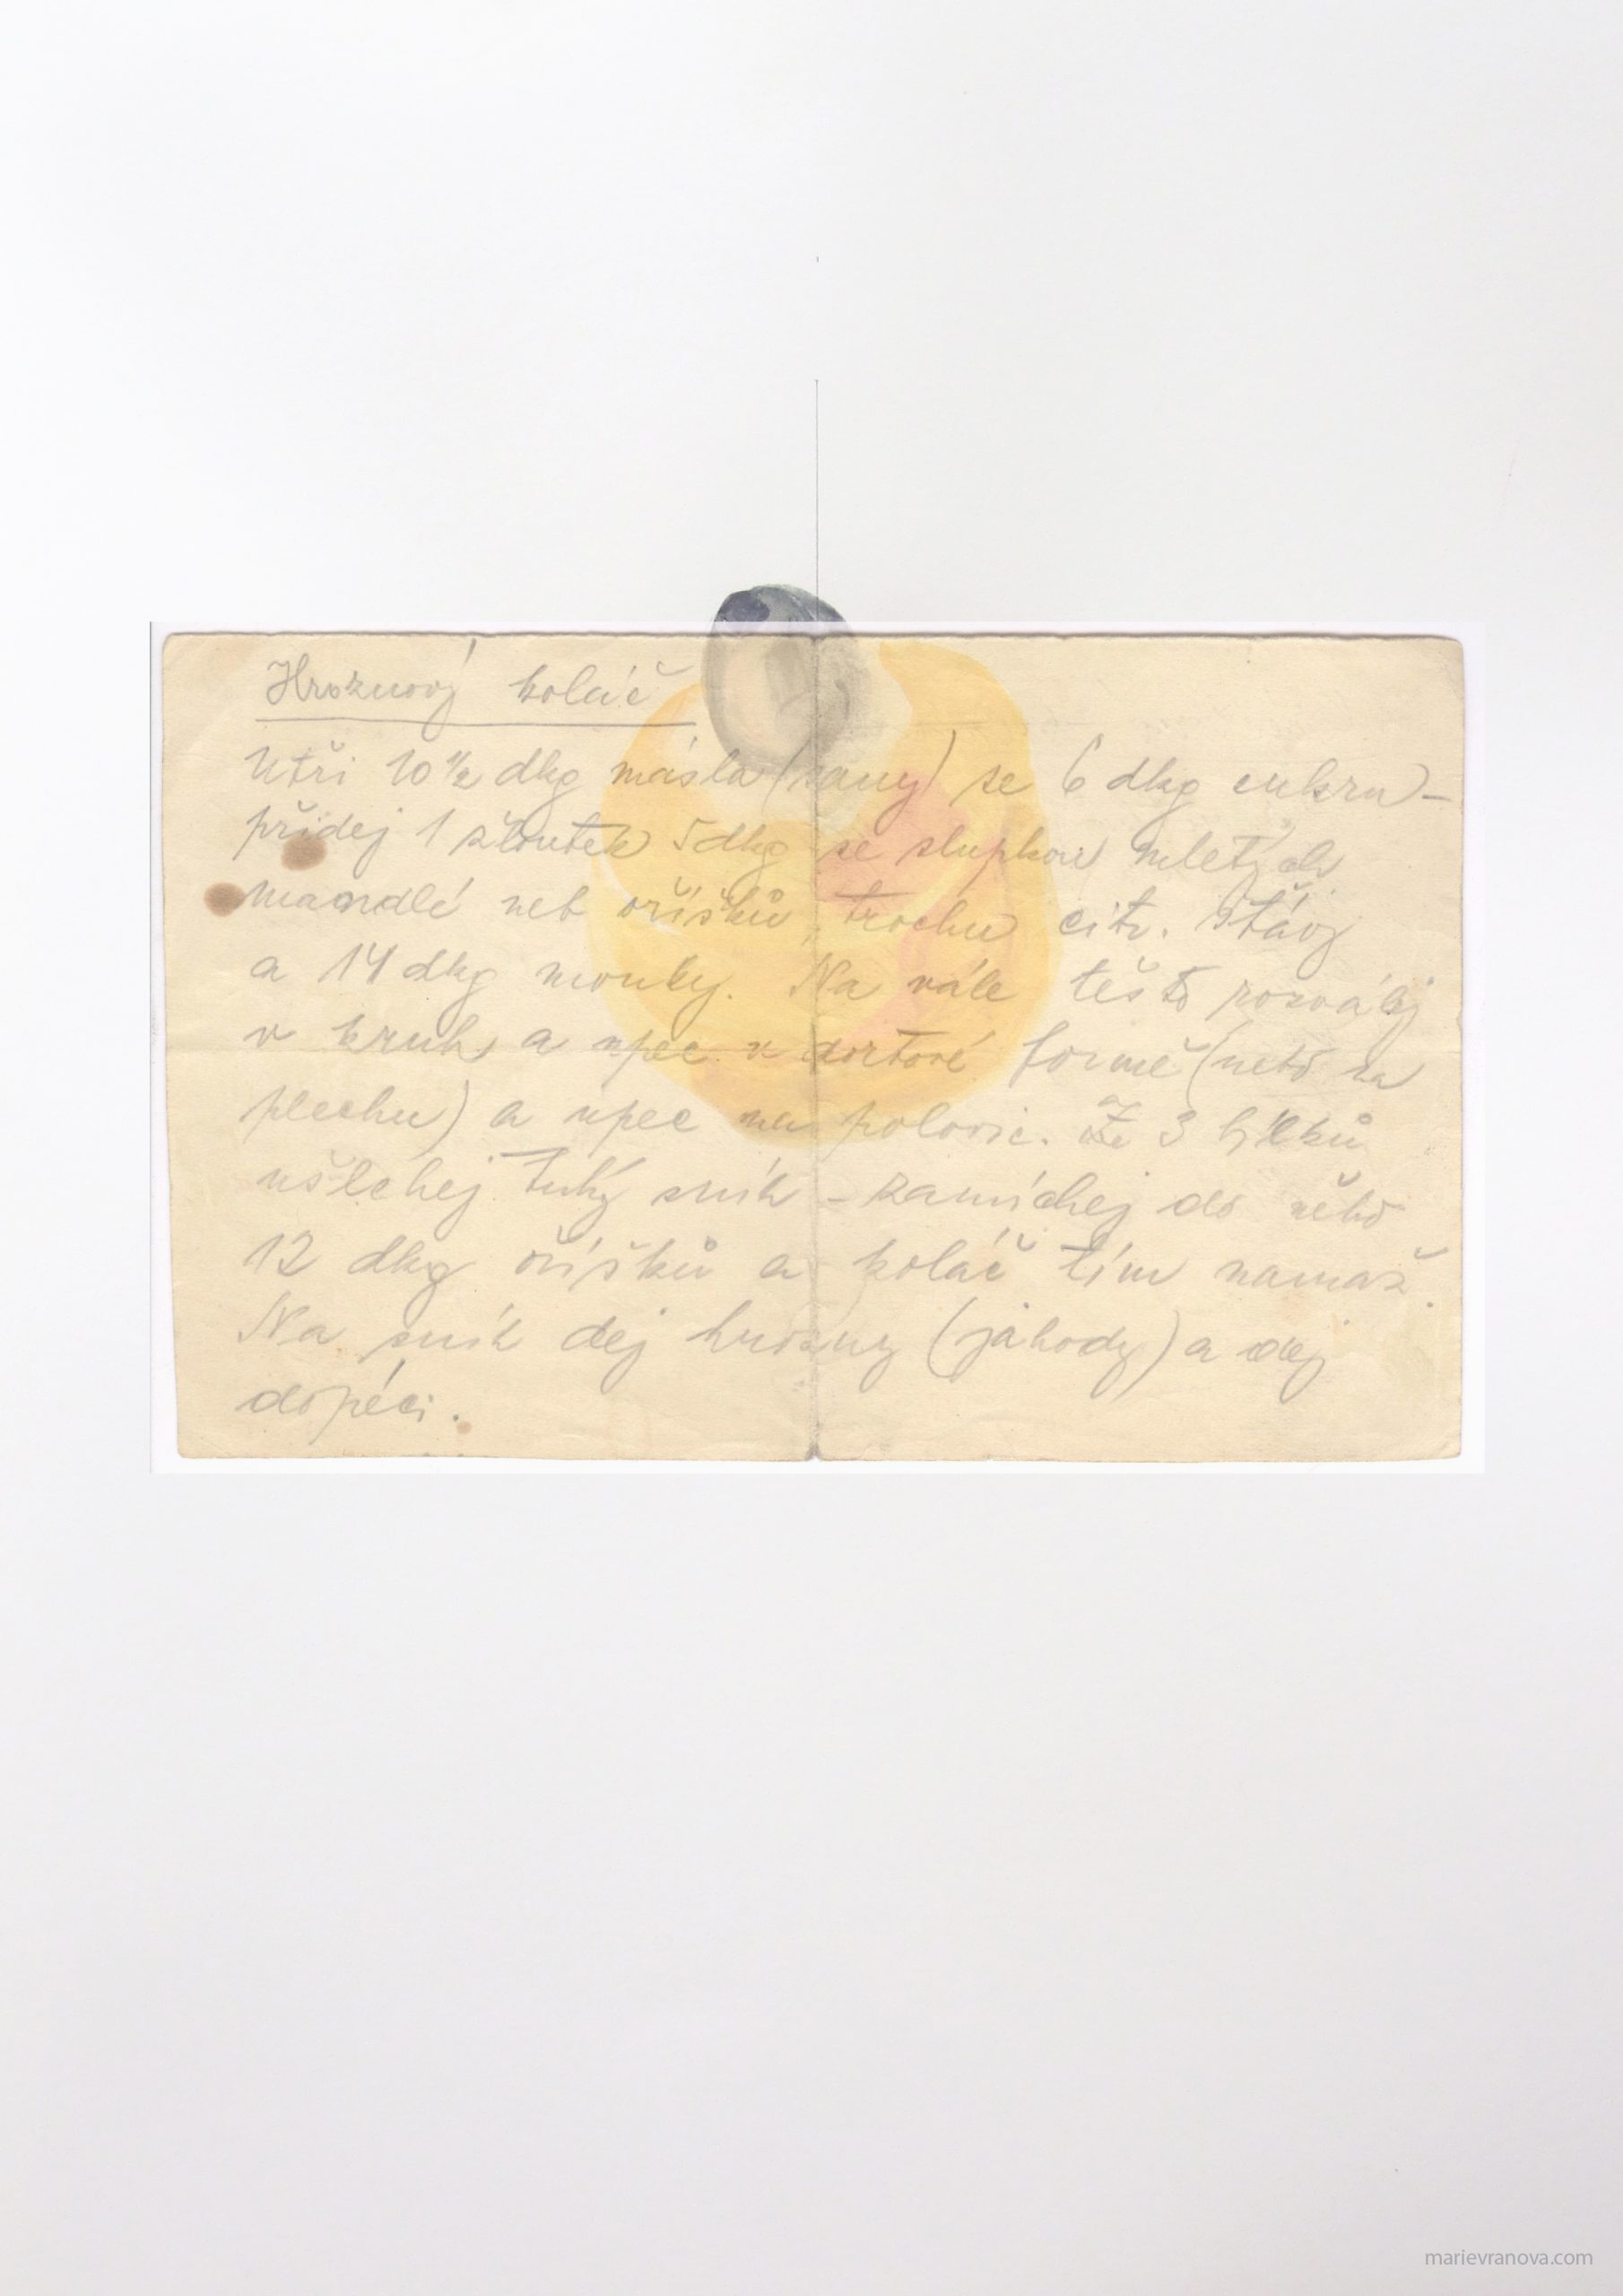 Hroznový koláč
Utři 10 1/2 dkg másla (sany) se 6 dkg cukru –
přidej 1 žloutek 5 dkg se slupkou mletých
mandlí neb oříšků, trochu citr. šťávy
a 14 dkg mouky. Na vále těsto rozválej
v kruh a upec v dortové formě (nebo na
plechu) a upec na polovic. Ze 3 bílků
ušlehej tuhý sníh – zamíchej do něho
12 dkg oříšků a koláč tím namaž.
Na sníh dej hrozny (jahody) a dej
dopéci.
marievranova.com